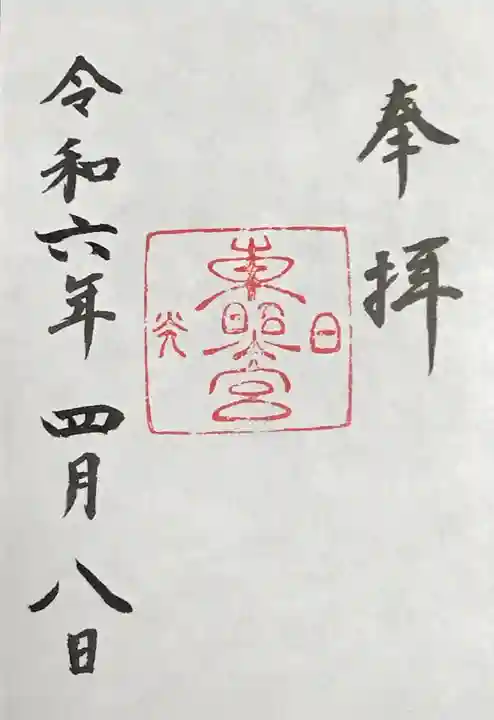 奉拝
日光
東照宮
令和六年 四月 八日